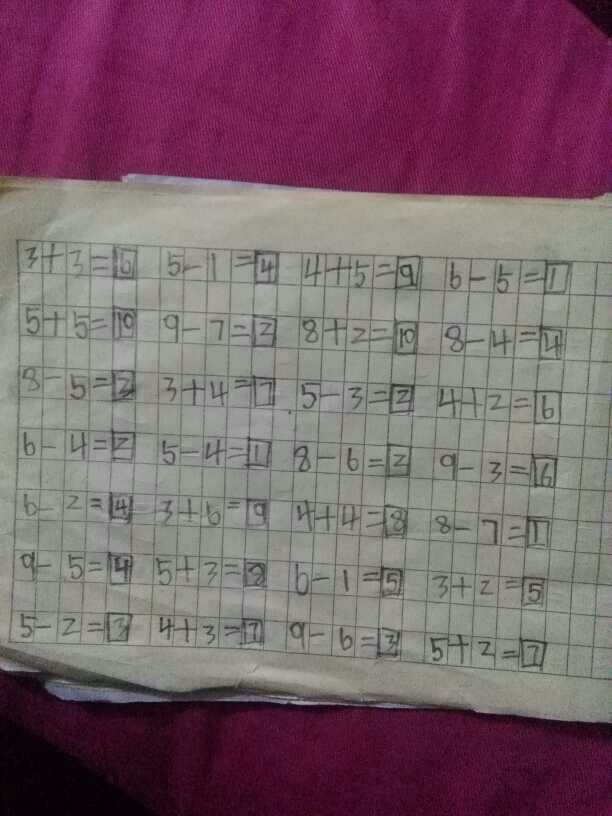 3+3=6 5-1=4 4+5=9 6-5=1
5+5=10 9-7=2 8+2=10 8-4=4
8-5=3 3+4=7 5-3=2 4+2=6
6-4=2 5-4=1 8-6=2 9-3=6
6-2=4 3+6=9 4+4=8 8-7=1
9-5=4 5+3=8 6-1=5 3+2=5
5-2=3 4+3=7 9-6=3 5+2=7